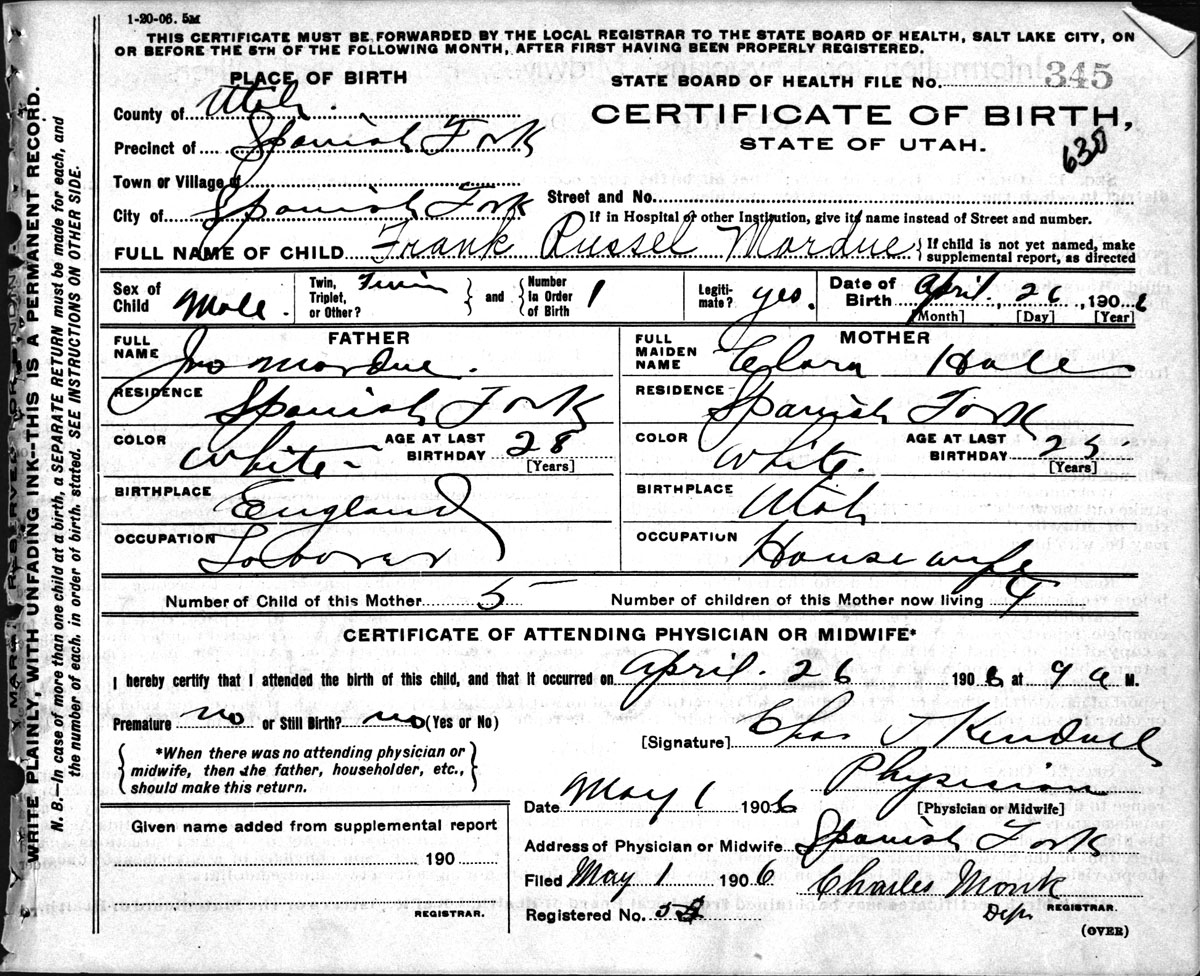 1-20-06. 5M
THIS CERTIFICATE MUST BE FORWARDED BY THE LOCAL REGISTRAR TO THE STATE BOARD OF HEALTH, SALT LAKE CITY, ON
OR BEFORE THE 5TH OF THE FOLLOWING MONTH, AFTER FIRST HAVING BEEN PROPERLY REGISTERED.
PLACE OF BIRTH
STATE BOARD OF HEALTH FILE No. 345
County of Utah.
CERTIFICATE OF BIRTH,
STATE OF UTAH.
630
Precinct of Spanish Fork
Town or Village of
City of Spanish Fork
Street and No.
If in Hospital or other Institution, give its name instead of Street and number.
FULL NAME OF CHILD Frank Russel Mordue
{If child is not yet named, make
supplemental report, as directed
Sex of Child Male.
Twin, Triplet, or Other? Twin
} and {
Number in Order of Birth 1
Legiti- mate? yes.
Date of Birth April. 26, 1906
[Month] [Day] [Year]
FATHER
FULL NAME Jno Mordue.
RESIDENCE Spanish Fork
COLOR White
AGE AT LAST BIRTHDAY 28
[Years]
BIRTHPLACE England
OCCUPATION Laborer
MOTHER
FULL MAIDEN NAME Clara Hales
RESIDENCE Spanish Fork
COLOR White.
AGE AT LAST BIRTHDAY 25
[Years]
BIRTHPLACE Utah
OCCUPATION Housewife
Number of Child of this Mother 5
Number of children of this Mother now living 4
CERTIFICATE OF ATTENDING PHYSICIAN OR MIDWIFE*
I hereby certify that I attended the birth of this child, and that it occurred on April. 26 1906, at 9 a M.
Premature no or Still Birth? no (Yes or No)
{*When there was no attending physician or
midwife, then the father, householder, etc.,
should make this return.}
[Signature] Chas J Kendall
Physician
[Physician or Midwife]
Date May 1 1906
Given name added from supplemental report
190
REGISTRAR.
Address of Physician or Midwife Spanish Fork
Filed May 1 1906
Charles Monk
Registered No.
Depu REGISTRAR.
(OVER)
WRITE PLAINLY, WITH UNFADING INK--THIS IS A PERMANENT RECORD.
N. B.—In case of more than one child at a birth, a SEPARATE RETURN must be made for each, and
the number of each, in order of birth, stated. SEE INSTRUCTIONS ON OTHER SIDE.